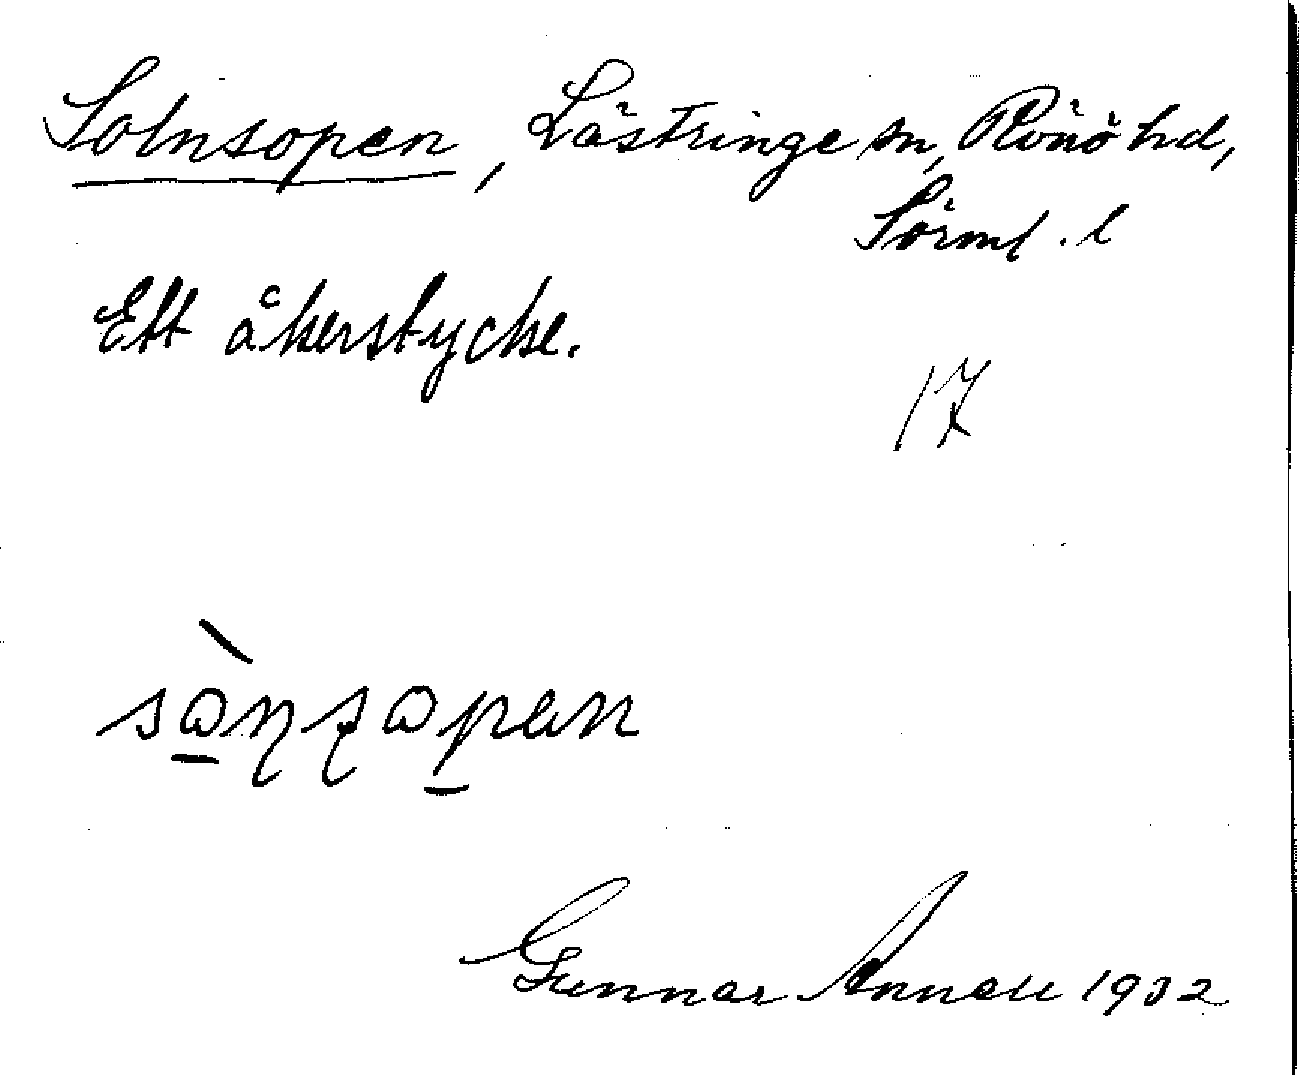 Solnsopen, Lästringe sn, Rönö hd,
Sörml. l
Ett åkerstycke.
17
sànsopen
Gunnar Annell 1932